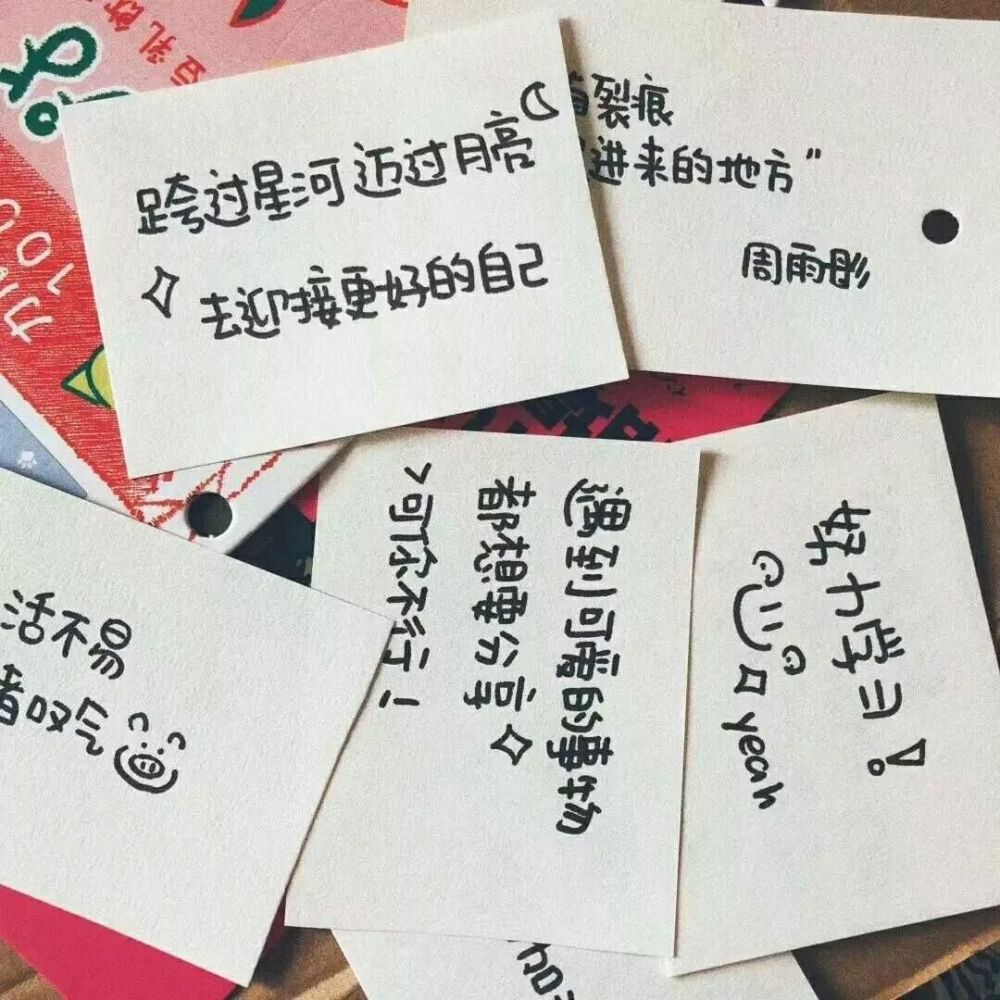 跨过星河迈过月亮
去迎接更好的自己
有裂痕
进来的地方”
周雨彤
活不易
猪叹气
遇到可爱的事物
都想要分享
>可你不行!
好力学习!
yeah
豆乳
100